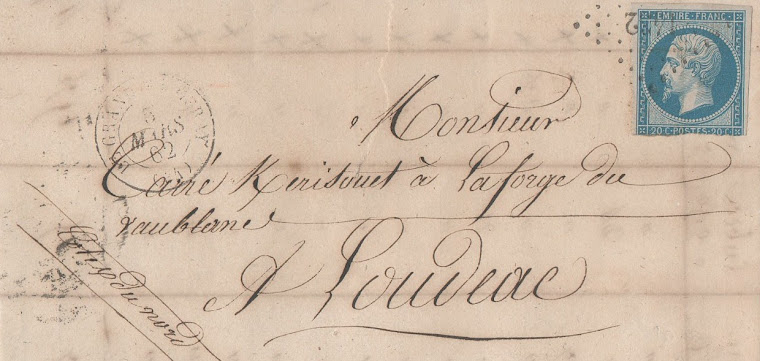 2
EMPIRE FRANC
20 C POSTES 20 C
MARS
62
Monsieur
Carré Kerisouet à la forge du
vaublanc
A Loudeac